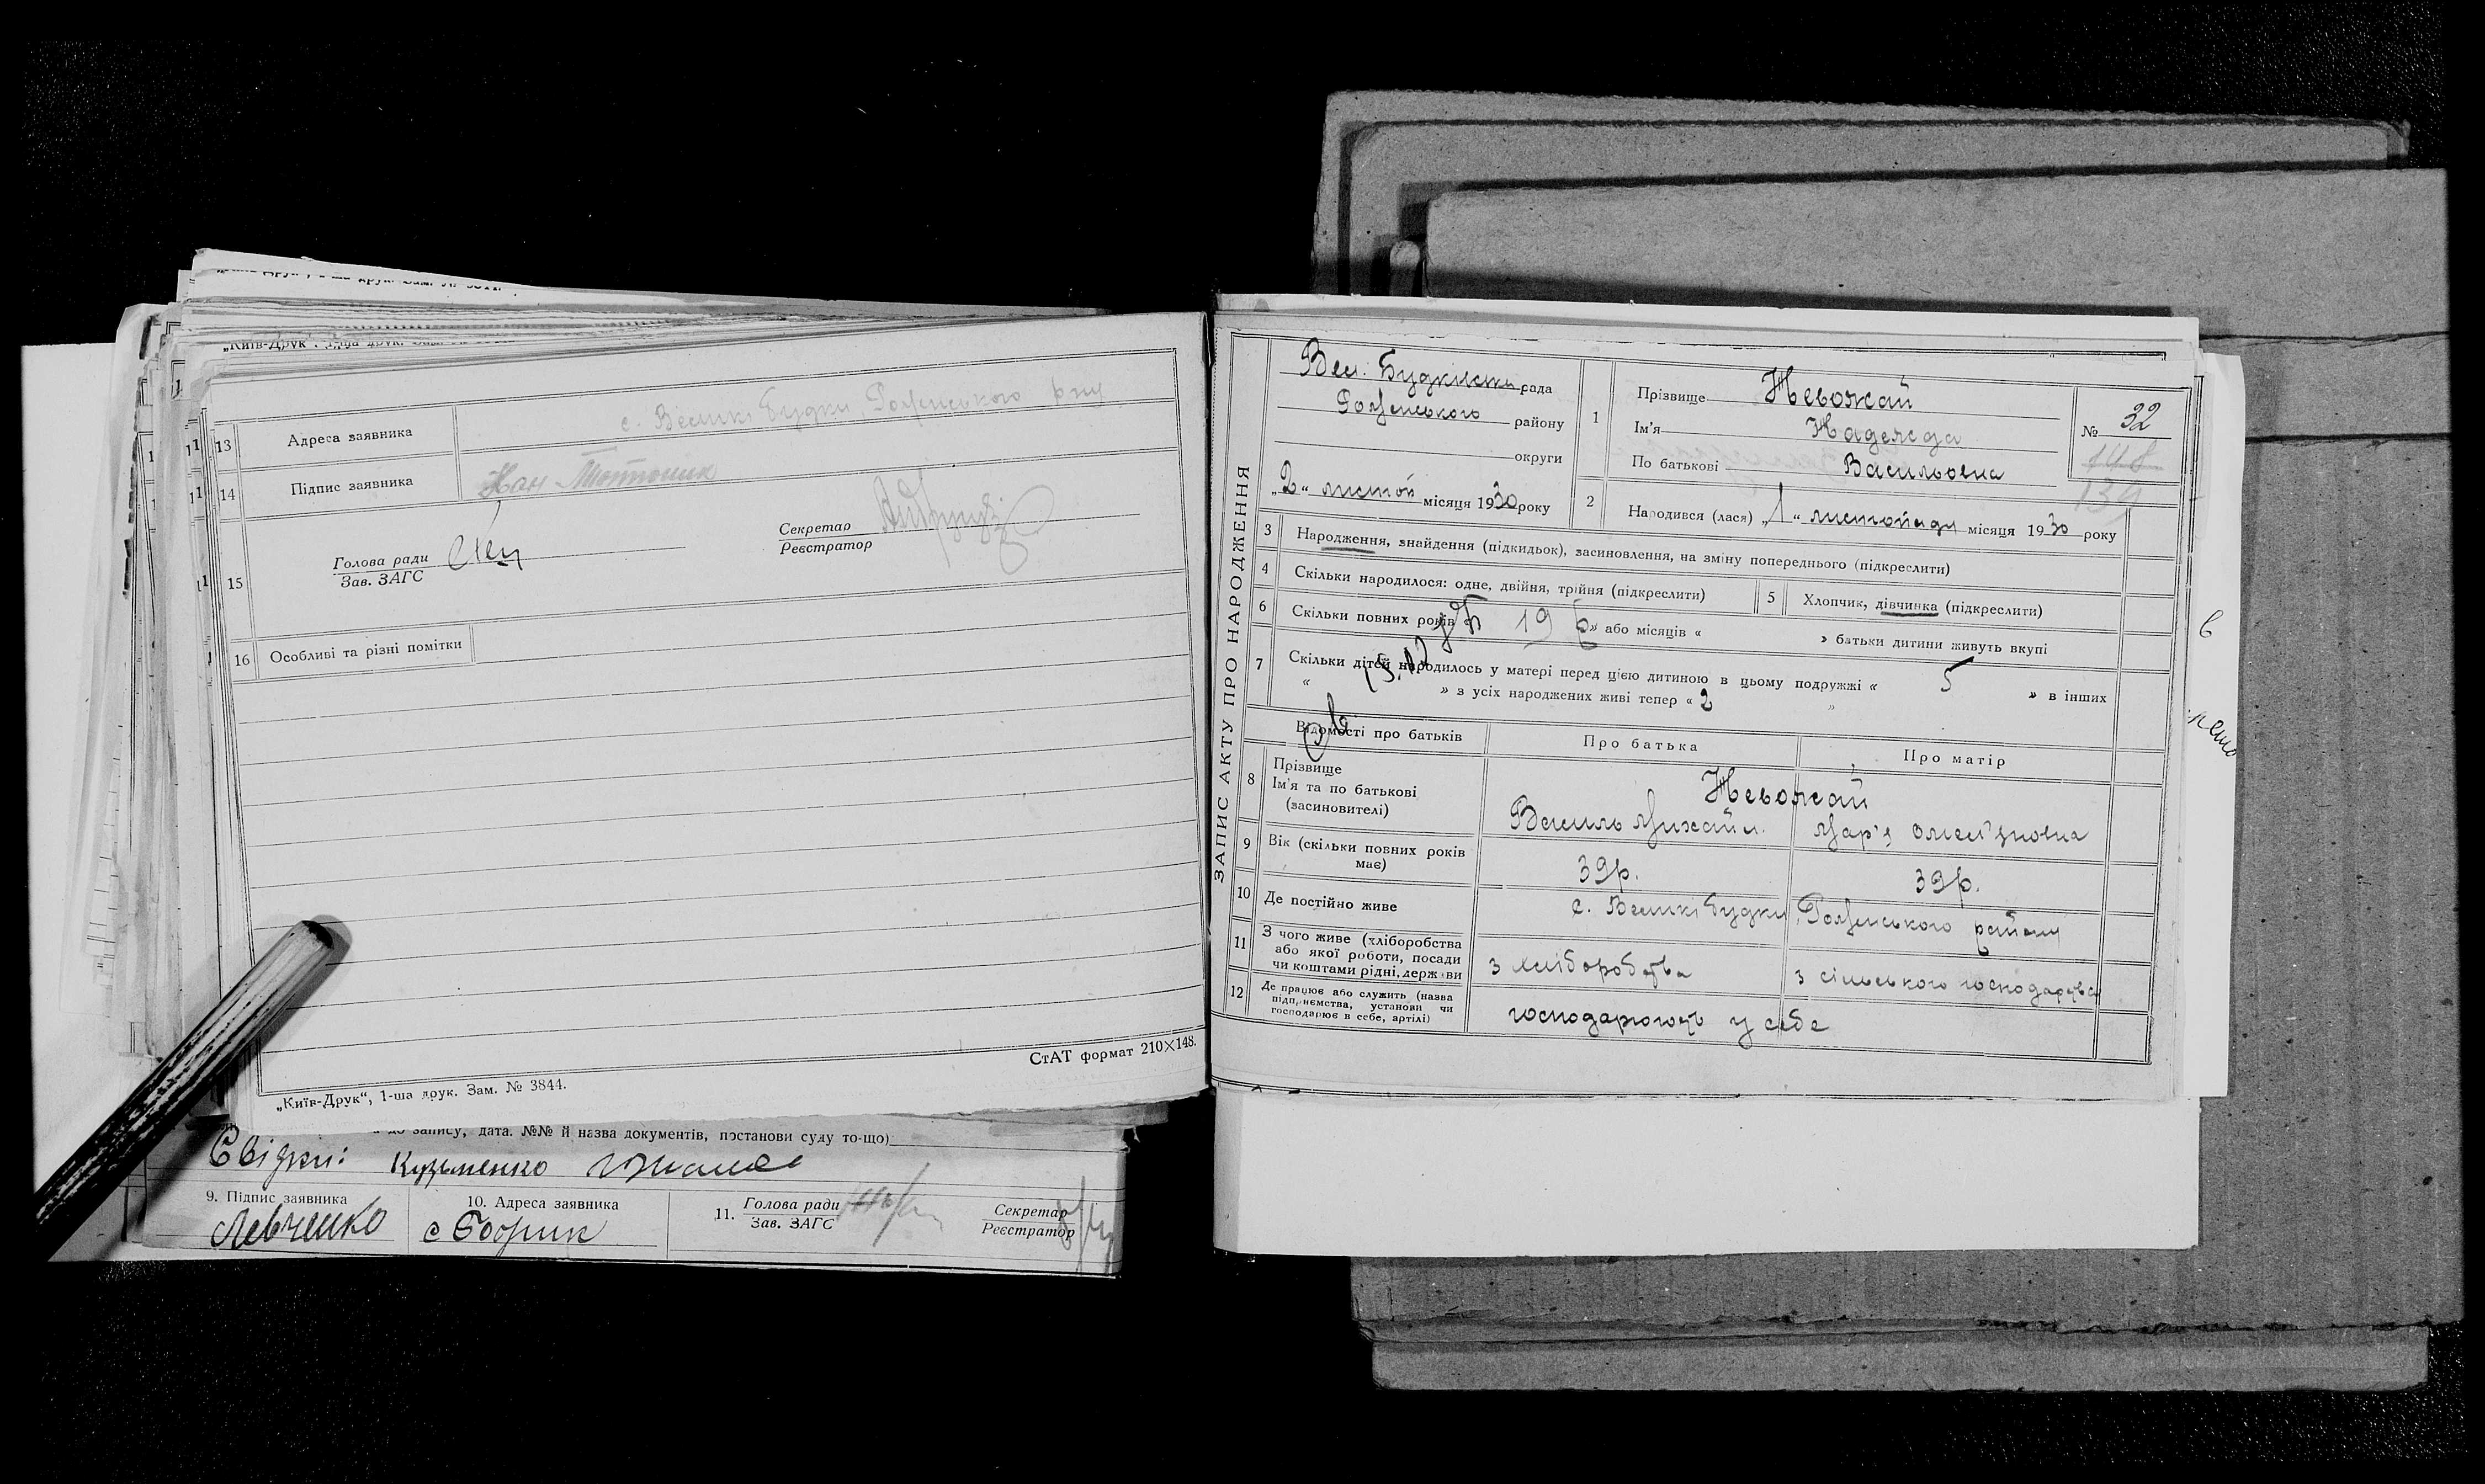 „Київ-Друк", 1-ша друк. Зам. №
13 Адреса заявника с. Великі Будки, Роменського р-ну
14 Підпис заявника
15 Голова ради
Зав. ЗАГС
Секретар
Реєстратор
16 Особливі та різні помітки
СтАТ формат 210×148.
„Київ-Друк", 1-ша друк. Зам. № 3844.
до запису, дата. №№ й назва документів, постанови суду то-що)
Свідки: Кузьменко
9. Підпис заявника
Левченко
10. Адреса заявника
с Бобрик
11. Голова ради
Зав. ЗАГС
Секретар
Реєстратор
ЗАПИС АКТУ ПРО НАРОДЖЕННЯ
Вел. Будківська рада
Роменського району
округи
„2" листоп місяця 1930 року
1 Прізвище Невожай
Ім'я Надежда
По батькові Васильовна
№ 32
148
139
2 Народився (лася) „1" листопада місяця 1930 року
3 Народження, знайдення (підкидьок), засиновлення, на зміну попереднього (підкреслити)
4 Скільки народилося: одне, двійня, трійня (підкреслити)
5 Хлопчик, дівчинка (підкреслити)
6 Скільки повних років « 19 » або місяців « » батьки дитини живуть вкупі
7 Скільки дітей народилось у матері перед цією дитиною в цьому подружжі « 5 » в інших
« » з усіх народжених живі тепер « 2 »
Відомості про батьків
Про батька
Про матір
8 Прізвище
Ім'я та по батькові
(засиновителі)
Невожай
Василь Михайл.
Мар'я
9 Вік (скільки повних років має)
39р.
39р.
10 Де постійно живе
с. Великі Будки, Роменського району
11 З чого живе (хліборобства або якої роботи, посади чи коштами рідні, держави
з хліборобства
з сільського господарства
12 Де працює або служить (назва підприємства, установи чи господарює в себе, артілі)
господарюють у себе